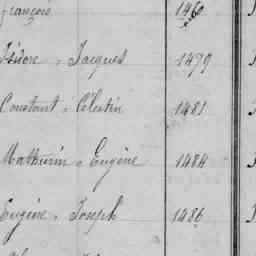 françois 1460
Isidore, Jacques 1479
Constant, Célestin 1481
Mathurin, Eugène 1484
Eugène, Joseph 1486